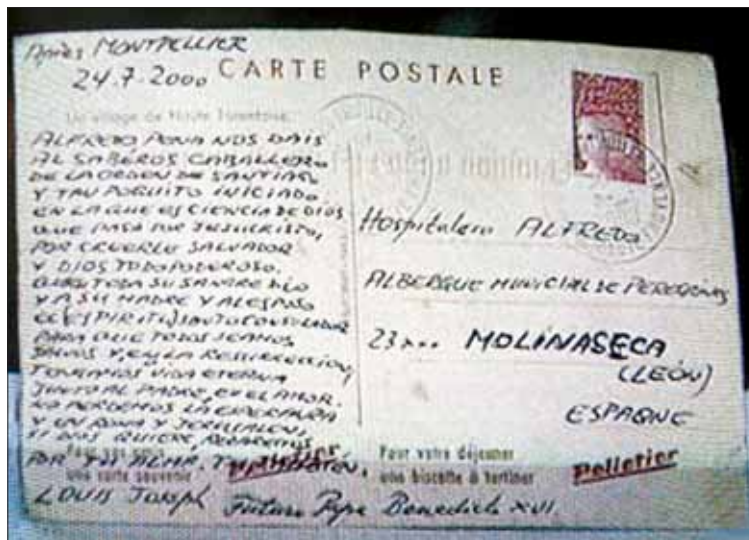 Après MONTPELLIER
24.7.2000
CARTE POSTALE
Un village de Haute Tarentaise
ALFREDO PENA NOS DAIS
AL SABEROS CABALLERO
DE LA ORDEN DE SANTIAGO
Y TAN POQUITO INICIADO
EN LA QUE ES CIENCIA DE DIOS
QUE PASA POR JESUCRISTO,
POR CREERLE SALVADOR
Y DIOS TODOPODEROSO.
QUE TODA SU SANGRE DIO
Y A SU MADRE Y AL ESPOSO
EL ESPIRITU SANTO CONSOLADOR
PARA QUE TODOS SEAMOS
SALVOS Y, EN LA RESURRECCION,
TENGAMOS VIDA ETERNA
JUNTO AL PADRE, EN EL AMOR.
NO PERDEMOS LA ESPERANZA
Y EN ROMA Y JERUSALEN,
SI DIOS QUIERE, REZAREMOS
POR TU ALMA,
LOUIS JOSEPH Futuro Papa Benedicto XVI.
Hospitalero ALFREDO
ALBERGUE MUNICIAL DE PEREGRINOS
MOLINASECA
(LEÓN)
ESPAGNE
une carte souvenir
Pour votre déjeuner
une biscotte à tartiner
Pelletier